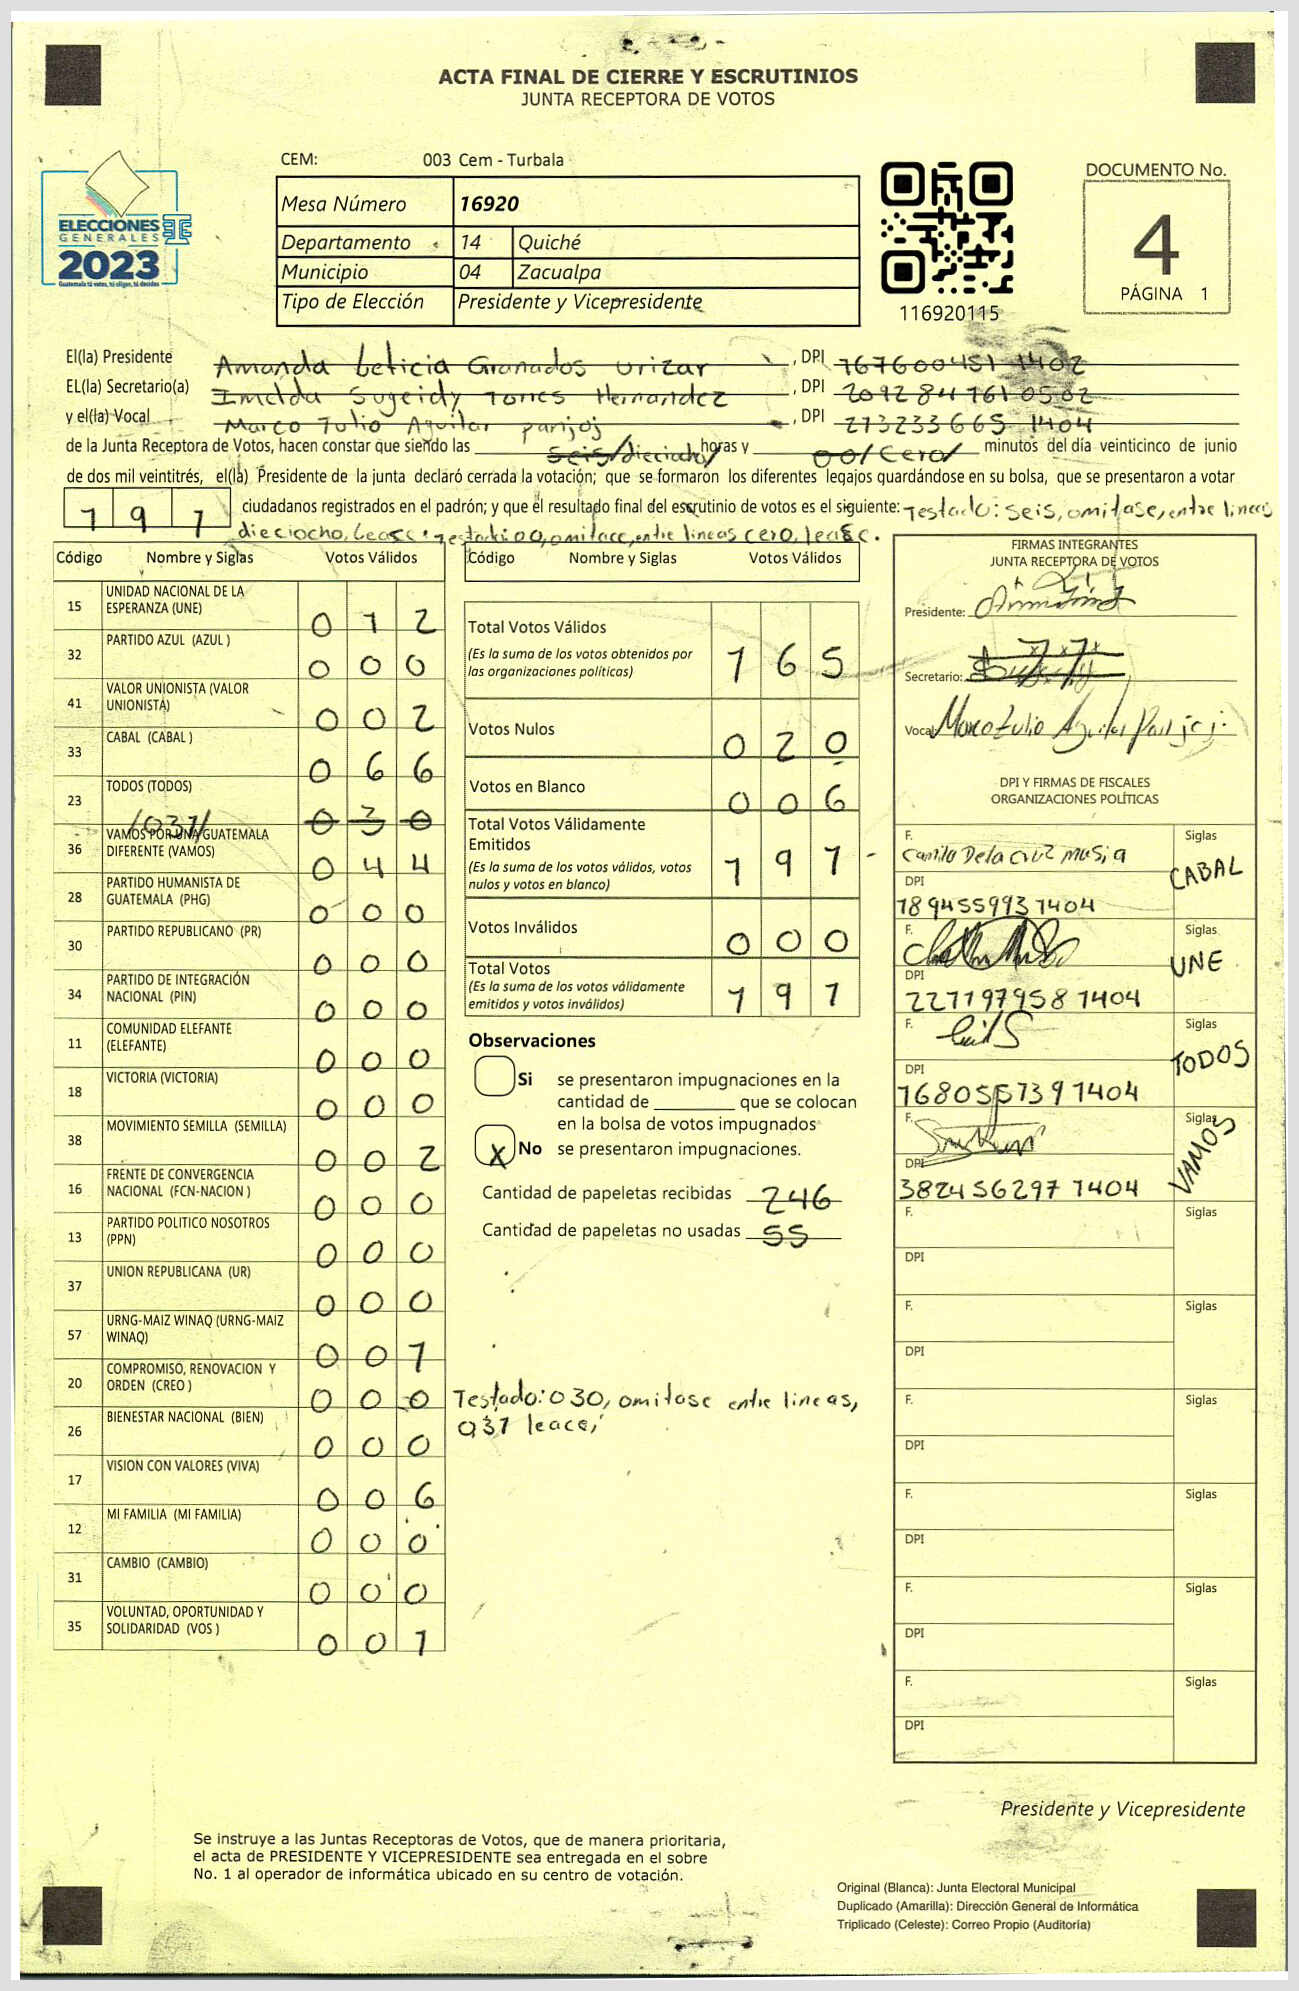 ACTA FINAL DE CIERRE Y ESCRUTINIOS
JUNTA RECEPTORA DE VOTOS
ELECCIONES
GENERALES
2023
Guatemala tú votas, tú eliges, tú decides
CEM: 003 Cem - Turbala
Mesa Número 16920
Departamento 14 Quiché
Municipio 04 Zacualpa
Tipo de Elección Presidente y Vicepresidente
116920115
DOCUMENTO No.
4
PÁGINA 1
El(la) Presidente Amanda Leticia Granados Urizar, DPI 767600451 1402
EL(la) Secretario(a) Imelda Sugeidy Torres Hernandez, DPI 209284761 0502
y el(la) Vocal Marco Tulio Aguilar parijoj, DPI 273233665 1404
de la Junta Receptora de Votos, hacen constar que siendo las seis/dieciocho/ horas y 00/cero/ minutos del día veinticinco de junio
de dos mil veintitrés, el(la) Presidente de la junta declaró cerrada la votación; que se formaron los diferentes legajos guardándose en su bolsa, que se presentaron a votar
191 ciudadanos registrados en el padrón; y que el resultado final del escrutinio de votos es el siguiente: Testado: seis, omitase, entre lineas
dieciocho, Lease. Testado: 00, omitace, entre lineas cero, lease.
Código Nombre y Siglas Votos Válidos
15 UNIDAD NACIONAL DE LA ESPERANZA (UNE) 012
32 PARTIDO AZUL (AZUL ) 000
41 VALOR UNIONISTA (VALOR UNIONISTA) 002
33 CABAL (CABAL ) 066
23 TODOS (TODOS) 030 /031/
36 VAMOS POR UNA GUATEMALA DIFERENTE (VAMOS) 044
28 PARTIDO HUMANISTA DE GUATEMALA (PHG) 000
30 PARTIDO REPUBLICANO (PR) 000
34 PARTIDO DE INTEGRACIÓN NACIONAL (PIN) 000
11 COMUNIDAD ELEFANTE (ELEFANTE) 000
18 VICTORIA (VICTORIA) 000
38 MOVIMIENTO SEMILLA (SEMILLA) 002
16 FRENTE DE CONVERGENCIA NACIONAL (FCN-NACION ) 000
13 PARTIDO POLITICO NOSOTROS (PPN) 000
37 UNION REPUBLICANA (UR) 000
57 URNG-MAIZ WINAQ (URNG-MAIZ WINAQ) 001
20 COMPROMISO, RENOVACION Y ORDEN (CREO ) 000
26 BIENESTAR NACIONAL (BIEN) 000
17 VISION CON VALORES (VIVA) 006
12 MI FAMILIA (MI FAMILIA) 000
31 CAMBIO (CAMBIO) 000
35 VOLUNTAD, OPORTUNIDAD Y SOLIDARIDAD (VOS ) 001
Código Nombre y Siglas Votos Válidos
Total Votos Válidos 165
(Es la suma de los votos obtenidos por
las organizaciones políticas)
Votos Nulos 020
Votos en Blanco 006
Total Votos Válidamente
Emitidos 191
(Es la suma de los votos válidos, votos
nulos y votos en blanco)
Votos Inválidos 000
Total Votos 191
(Es la suma de los votos válidamente
emitidos y votos inválidos)
Observaciones
Si se presentaron impugnaciones en la
cantidad de ________ que se colocan
en la bolsa de votos impugnados
X No se presentaron impugnaciones.
Cantidad de papeletas recibidas 246
Cantidad de papeletas no usadas 55
Testado: 030, omitase entre lineas,
031 leace,
FIRMAS INTEGRANTES
JUNTA RECEPTORA DE VOTOS
Presidente:
Secretario:
Vocal: Marco Tulio Aguilar Parijoj
DPI Y FIRMAS DE FISCALES
ORGANIZACIONES POLÍTICAS
F. Camilo De la cruz musia Siglas CABAL
DPI 189455993 1404
F. Siglas UNE
DPI 227197958 1404
F. Siglas TODOS
DPI 168055739 1404
F. Siglas VAMOS
DPI 382456297 1404
F. Siglas
DPI
F. Siglas
DPI
F. Siglas
DPI
F. Siglas
DPI
F. Siglas
DPI
F. Siglas
DPI
Presidente y Vicepresidente
Se instruye a las Juntas Receptoras de Votos, que de manera prioritaria,
el acta de PRESIDENTE Y VICEPRESIDENTE sea entregada en el sobre
No. 1 al operador de informática ubicado en su centro de votación.
Original (Blanca): Junta Electoral Municipal
Duplicado (Amarilla): Dirección General de Informática
Triplicado (Celeste): Correo Propio (Auditoría)